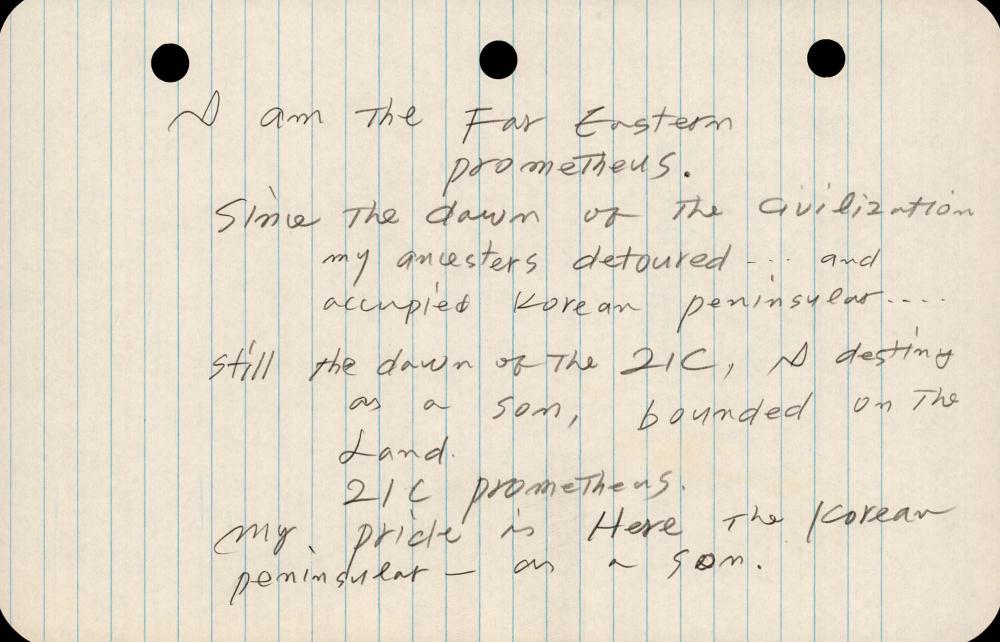 I am the Far Eastern
prometheus.
Since the dawn of the civilization
my ancesters detoured --- and
accupied Korean peninsular....
still the dawn of the 21C, I destiny
as a son, bounded on the
Land.
21C prometheus.
my pride is Here the Korean
peninsular – as a son.